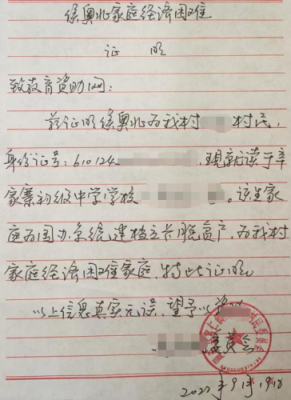 侯奥兆家庭经济困难
证 明
致教育资助网:
兹证明侯奥兆为我村 村民,
身份证号:610124 ,现就读于辛
家寨初级中学学校 。该生家
庭为国办系统建档立卡脱贫户,为我村
家庭经济困难家庭,特此证明。
以上信息真实无误,望予以
委员会
2022年9月19日